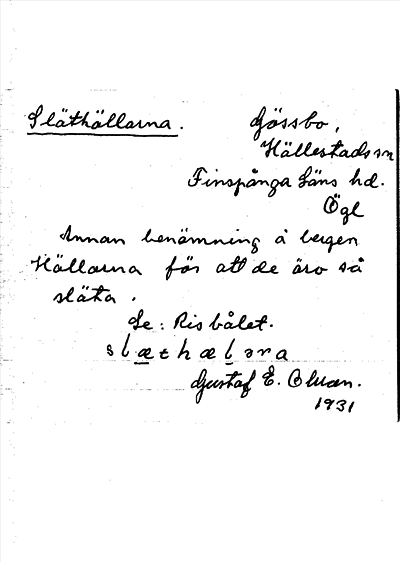 Släthällarna.
Gössbo,
Hällestads sn
Finspånga Läns hd.
Ögl
Annan benämning å bergen
Hällarna för att de äro så
släta.
Se: Risbålet.
slæthælәra
Gustaf E. Olsson.
1931